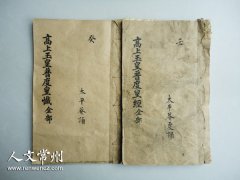 癸
高上玉皇普度皇懺全部
太平答誦
壬
高上玉皇普度皇經全部
太平答至誦
人文常州
renwencz.com